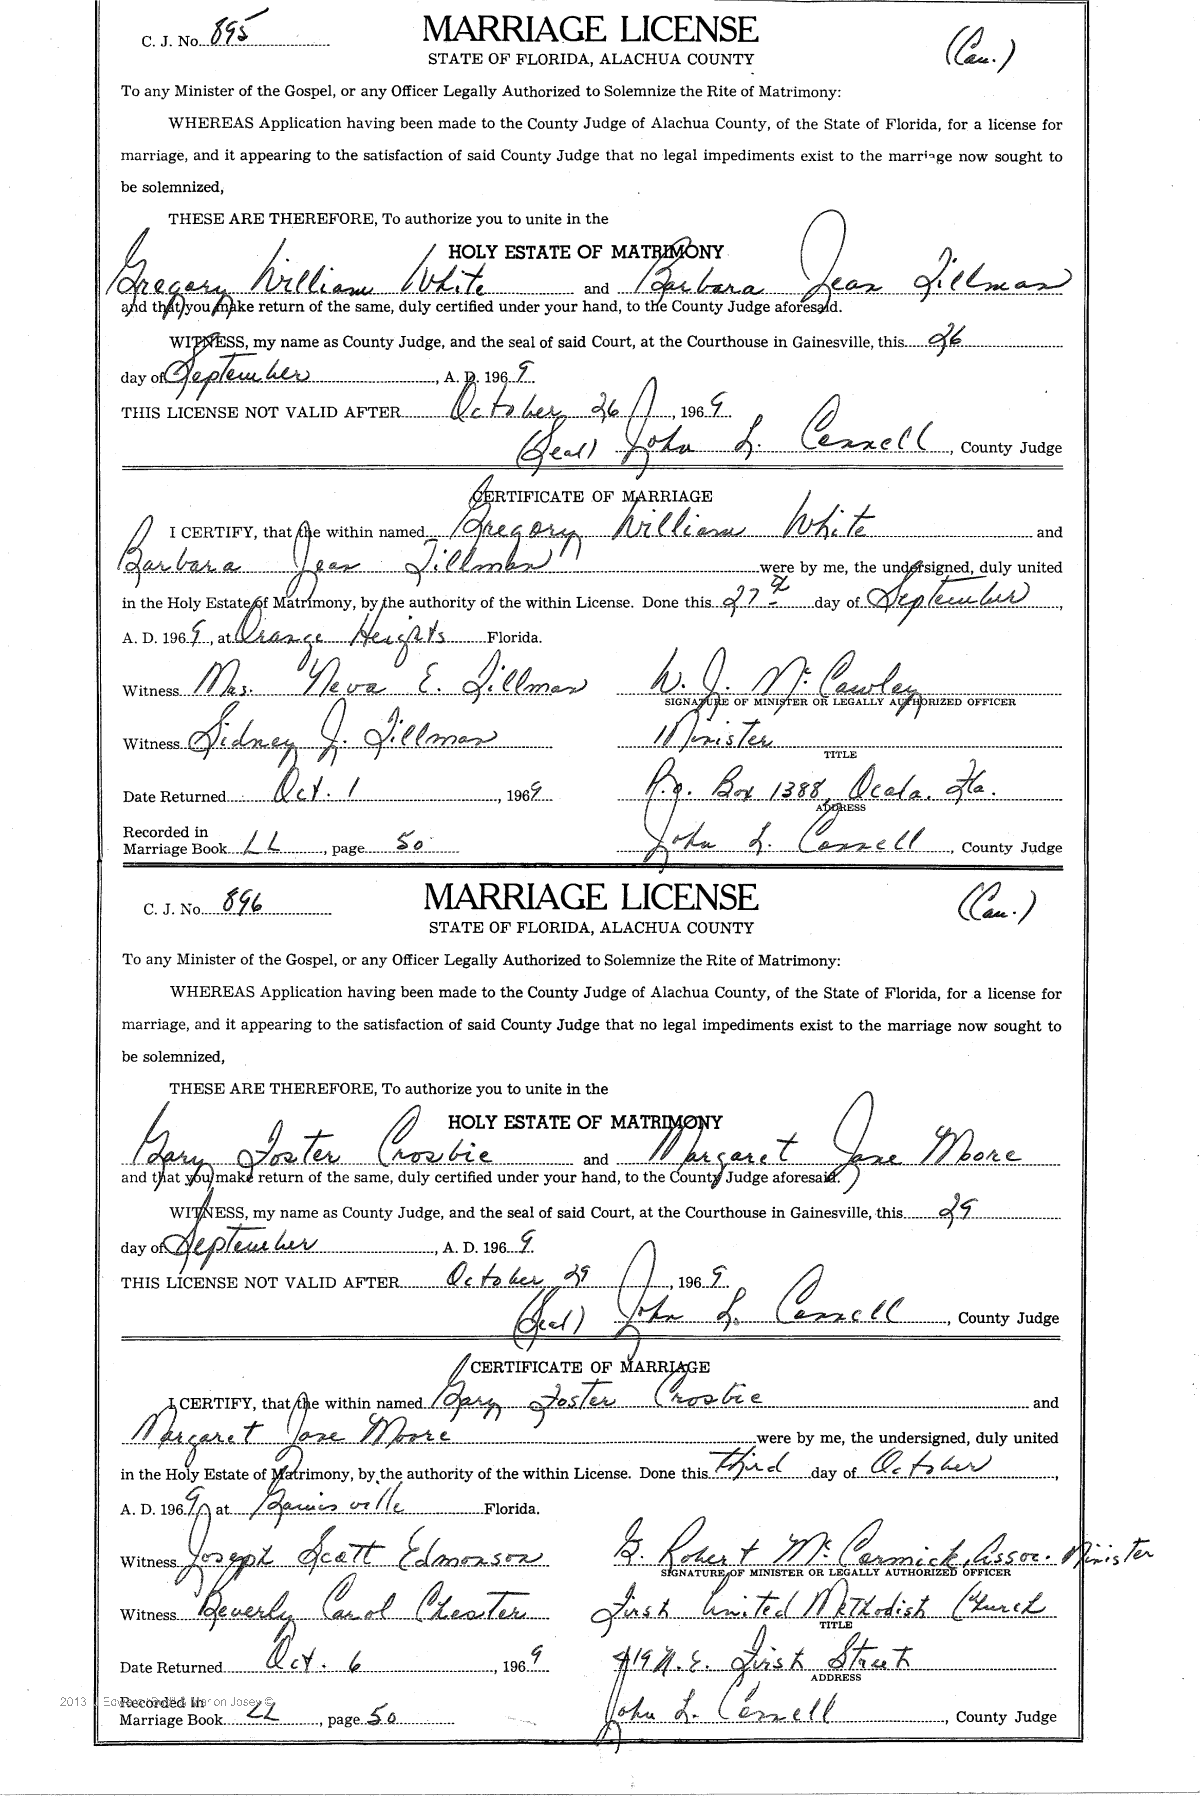 C. J. No. 895
MARRIAGE LICENSE
(Cau.)
STATE OF FLORIDA, ALACHUA COUNTY
To any Minister of the Gospel, or any Officer Legally Authorized to Solemnize the Rite of Matrimony:
WHEREAS Application having been made to the County Judge of Alachua County, of the State of Florida, for a license for
marriage, and it appearing to the satisfaction of said County Judge that no legal impediments exist to the marriage now sought to
be solemnized,
THESE ARE THEREFORE, To authorize you to unite in the
HOLY ESTATE OF MATRIMONY
Gregory William White and Barbara Jean Tillman
and that you make return of the same, duly certified under your hand, to the County Judge aforesaid.
WITNESS, my name as County Judge, and the seal of said Court, at the Courthouse in Gainesville, this 26
day of September, A. D. 1969.
THIS LICENSE NOT VALID AFTER October 26, 1969
(Seal) John L. Connell, County Judge
CERTIFICATE OF MARRIAGE
I CERTIFY, that the within named Gregory William White and
Barbara Jean Tillman were by me, the undersigned, duly united
in the Holy Estate of Matrimony, by the authority of the within License. Done this 27th day of September,
A. D. 1969, at Orange Heights Florida.
Witness Mrs. Neva E. Tillman W. J. McCawley
SIGNATURE OF MINISTER OR LEGALLY AUTHORIZED OFFICER
Witness Sidney J. Tillman Minister
TITLE
Date Returned Oct. 1, 1969 P.O. Box 1388, Ocala. Fla.
ADDRESS
Recorded in
Marriage Book LL, page 50 John L. Connell, County Judge
C. J. No. 896
MARRIAGE LICENSE
(Cau.)
STATE OF FLORIDA, ALACHUA COUNTY
To any Minister of the Gospel, or any Officer Legally Authorized to Solemnize the Rite of Matrimony:
WHEREAS Application having been made to the County Judge of Alachua County, of the State of Florida, for a license for
marriage, and it appearing to the satisfaction of said County Judge that no legal impediments exist to the marriage now sought to
be solemnized,
THESE ARE THEREFORE, To authorize you to unite in the
HOLY ESTATE OF MATRIMONY
Gary Foster Crosbie and Margaret Jane Moore
and that you make return of the same, duly certified under your hand, to the County Judge aforesaid.
WITNESS, my name as County Judge, and the seal of said Court, at the Courthouse in Gainesville, this 29
day of September, A. D. 1969.
THIS LICENSE NOT VALID AFTER October 29, 1969
(Seal) John L. Connell, County Judge
CERTIFICATE OF MARRIAGE
I CERTIFY, that the within named Gary Foster Crosbie and
Margaret Jane Moore were by me, the undersigned, duly united
in the Holy Estate of Matrimony, by the authority of the within License. Done this third day of October,
A. D. 1969, at Gainesville Florida.
Witness Joseph Scott Edmonson G. Robert McCormick, Assoc. Minister
SIGNATURE OF MINISTER OR LEGALLY AUTHORIZED OFFICER
Witness Beverly Carol Chester First United Methodist Church
TITLE
Date Returned Oct. 6, 1969 419 N.E. First Street
ADDRESS
2013
Recorded in
Marriage Book LL, page 50 John L. Connell, County Judge